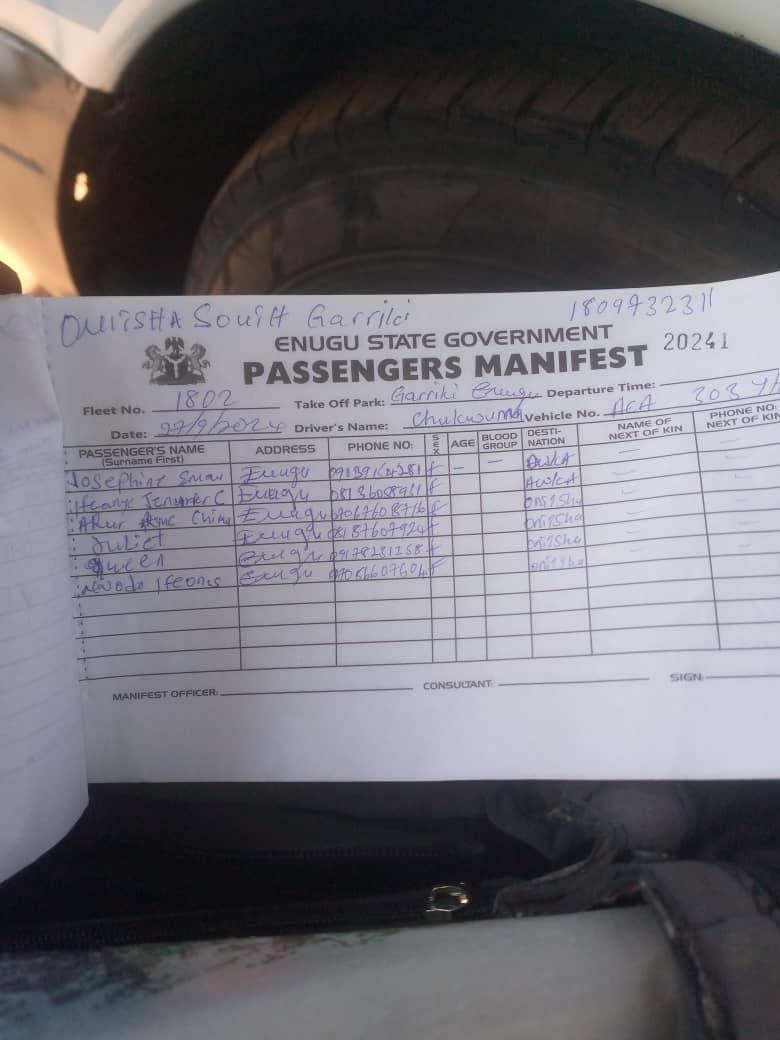 ONITSHA South Garriki 1809732311
ENUGU STATE GOVERNMENT
PASSENGERS MANIFEST 20241
Fleet No. 1802 Take Off Park: Garriki Enugu Departure Time:
Date: 27/9/2024 Driver's Name: Chukwuma Vehicle No. ACA 303 Y
PASSENGER'S NAME (Surname First) ADDRESS PHONE NO: SEX AGE BLOOD GROUP DESTI-NATION NAME OF NEXT OF KIN PHONE NO: NEXT OF KIN
Josephine Enugu f - - AWKA
Ifeanyi C Enugu 08136058961 f AWKA
China Enugu 09067608716 f Onitsha
Juliet Enugu 08137607924 f Onitsha
Queen Enugu 09178231258 f Onitsha
Ifeoma Enugu 07056607604 f Onitsha
MANIFEST OFFICER: CONSULTANT: SIGN: